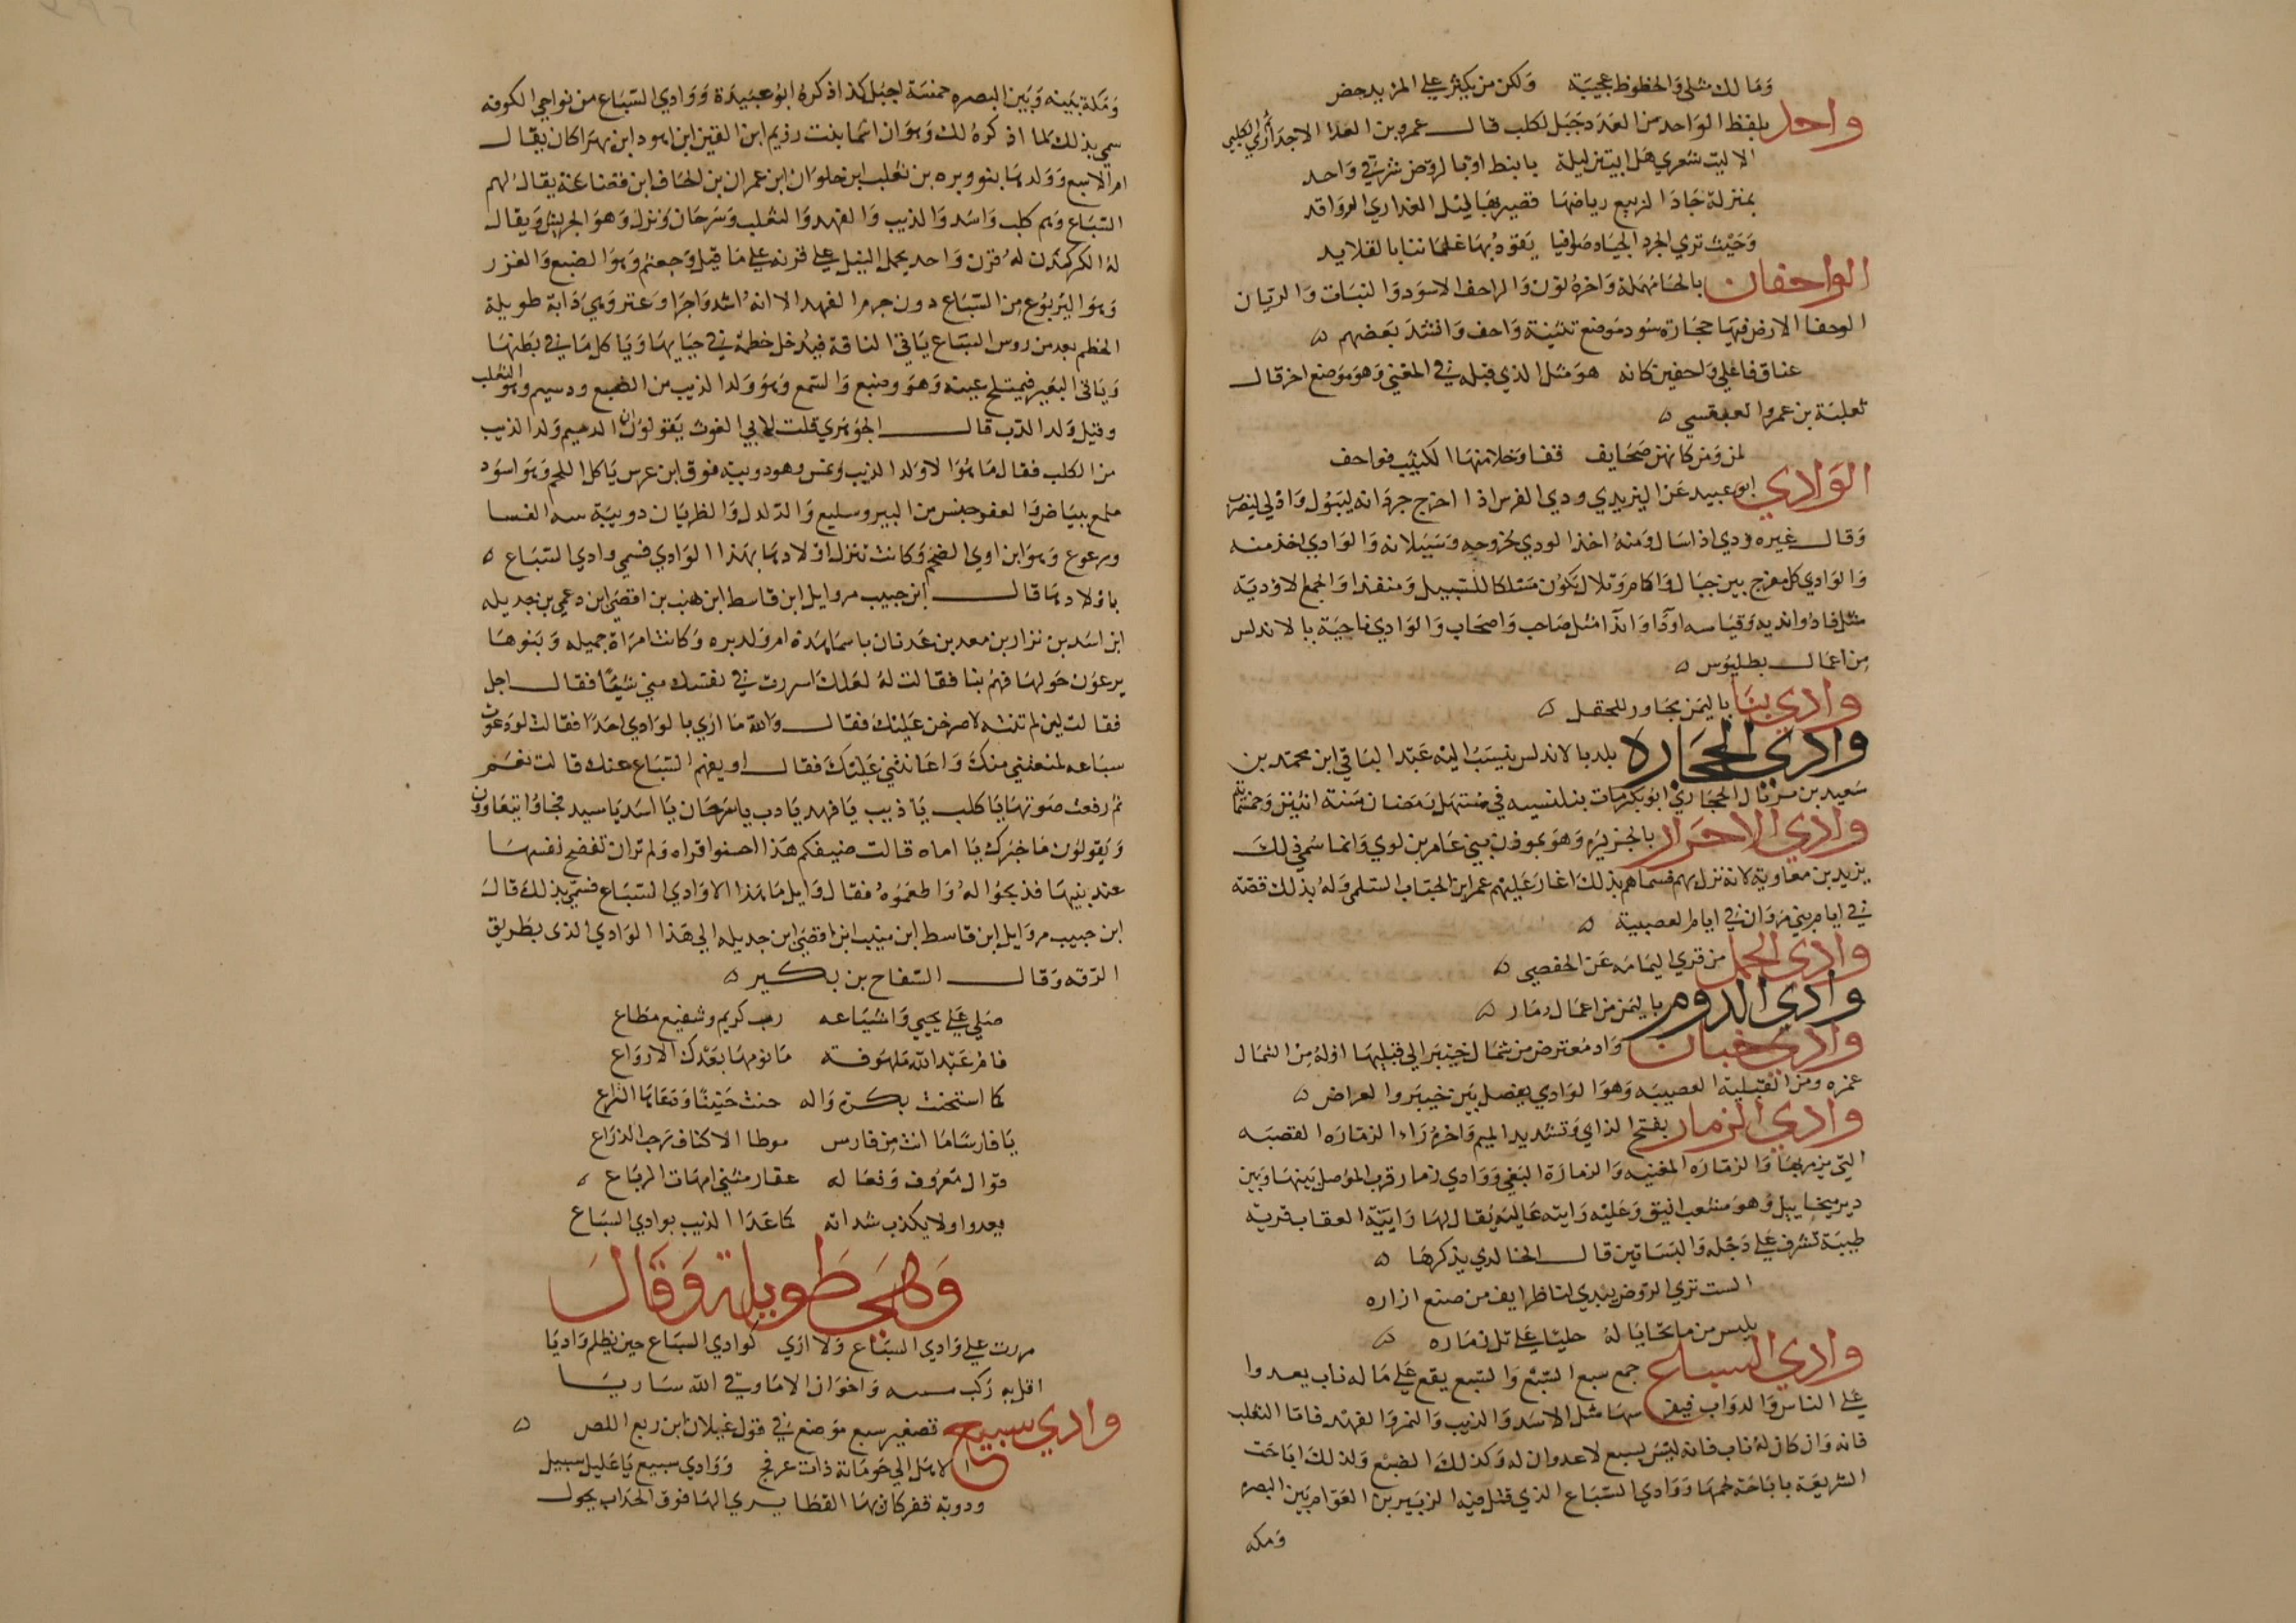 وَمَا لك مثلى وَالحظوظ عجيبَة   وَلكن من يكثر علي المزيد حض
واحد بلفظ الوَاحد من العَدَد جَبَل لكلب قالــ عمرو بن العدا الاجدَاري الكلبي
الا ليت شعري هَل ابيتن ليلة   بابنط اوبالروَض شرقي وَاحد
بمنزلة جَادَ الربيع رياضهَا   قصير بهَا ليْل العذاري الروَاقد
وَحَيْث تري الجرد الجيَاد صوَافيا   يَقوّدُ بهَا غلمَاننا بالقلايد
الواحفان بالحَا مُهمَلة وَاخرهُ نوْن وَالواحف الاسوَد وَالنبَات وَالريّان
الوحفا الارض فيهَا حجَارة سُود مَوضع تثنيَة وَاحف وَانشدَ بَعضهم ه
عناق فاعلي وَاحفين كانه   هوَ مثل الذي قبله في المغني وَهوَ مَوضع اخر قالــ
ثعلبَة بن عمروا لعبقسي ه
لمن دَمن كانهن صَحَايف   قفا وَخلا منهَا الكثيب فواحف
الوَادي ابو عبيد عَن اليزيدي ودي الفرس اذا اخرج جردَانه ليَبول وَادْلي ليضرب
وَقالــ غيره ودي اذا سَال وَمنهُ اخذ الودي لخروجه وَسَيَلانه وَالوَادي اخذ منه
وَالوَادي كل مفرج بين جبَال وَاكام وَتلال يَكوُن مَسْلكا للسَّبيل وَمنفذا وَالجمع لاوديَة
مثل نادُ واندية وَقياسه اودَا وَاندَا مثل صَاحب وَاصحَاب وَالوَادي ناحيَة بالاندلس
مِن اعمَالــ بطليَوس ه
وادي بنَا باليمَن مجَاور للحقل ه
وادي الحجَاره بلد بالاندلس ينسَبُ اليْه عَبْد البَاقي ابن محمّد بن
سَعيد بن بريَال الحجَاري ابو بكر مَات ببلنسيه في مسْتهَل رَمَضان سَنة اثنيْن وَخمسْمائة
وادي الاحرَار بالجزيرَه وَهوَ بموذن بيني عَامر بن لوي وَانما سُمي ذلكَ
يزيد بن معاوية لانه نزلـ بهم فسماهم بذلك اغارَ عَليْهم عمر ابن الحبَاب السّلمي وَلهُ بذلك قصّه
في ايام بني مَروَان في ايام العصبية ه
وادي الجمل من قري اليمَامَه عَن الحفصي ه
وادي الدوم باليمَن من اعمَال زمَار ه
وادي خبان وَاد مُعترض من شمَال خيْبَر الي قبليهَا اوّلهُ مِن الشمَال
غمره ومن القبْليَة العصيبَه وَهوَ الوَادي يفصل بَين خيبَر والعراض ه
وادي الزمار بفتح الزاي وَتشديد الميم وَاخرهُ رَاء الزمّارَه القصبَه
التي يزمر بهَا وَالزمّارَه المغنيَه وَالزمارَة البَغي وَوَادي زمار قرب الموصل بَينهَا وَبَين
دير ميخاييل وَهوَ مَنشعب انيق وَعَليْه رَابيَه عَاليَه يُقال لهَا رَابيَة العقاب قريَه
طيبَة تشرف عَلي دَجْله وَالبسَاتين قالــ الخالدي يذكرهَا ه
الست تري الروَض يبْدي لنا   ظرايف من صنع ازاره
يلبس من ما تحايَا لهُ   حليًا عَلي تل زمَاره ه
وادي السباع جمع سبع السّبْع وَالسّبع يقع عَلي مَا له ناب يعدوا
عَلي الناس وَالدوَاب فيفترسهَا مثل الاسَد وَالذيب وَالنمر وَالفهَد فامّا الثعلب
فانه وَان كان لهُ ناب فانه ليْسَ بسبع لا عدوان له وَكذلك الضبع وَلذلكَ ابَاحَت
الشريعَة باباحَة لحمهَا وَوَادي السّبَاع الذي قتل فيه الزبَيربن العَوَّام بَين البصره
وَمكه
وَمَكة بَيْنه وَبَين البصره خمسَة اجبُل كذا ذكرهُ ابوُ عبَيدَة وَوَادي السّبَاع من نواحي الكوفه
سمي بذلك لما اذكرهُ لك وَهوَ ان اسْمَا بنت رزيم ابن القين ابن اهود ابن بهرَا كان يُقالــ
ام الاسبع وَوَلدهَا بنو وبره بن ثعلب ابن حلوَان ابن عمران بن الحَاف ابن قضاعَة يقالُ لهم
السّبَاع وَهم كلب وَاسَد وَالذيب وَالفهد وَالثعْلب وَسَرحَان وَنزلــ وَهوَ الجريش وَيقالــ
لهُ الكركدَن لهُ قرَن وَاحد يحمل الفيْل علي قرنه عَلي مَا قيْل وَجعثم وَهوَ الضبع وَالفزر
وَهوَ اليرْبوع مِن السّبَاع دون جرم الفهد الا انهُ اشد وَاجرَا وَعنتر وَهيَ دَابة طويلة
الخطم يعد من روس السّبَاع يَاتي الناقة فيدْخل خطمَهُ في حيَايهَا وَيَاكل مَا في بَطنهَا
وَيَاتي البَعير فيمتلخ عينه وَهوَ وضبع وَالسّمع وَهوَ وَلد الذيب من الضبع وديسم وهو الثعلب
وقيْل وَلد الدّب قالــ الجوْهَري قلت لابي الغوث يَقولوْن ان الديسم وَلد الذيب
من الكلب فقال مَا هوَ الا وَلد الذيب وَنمس وهو دويبة فوق ابن عرس يَاكل اللحم وَهوَ اسوَد
ملمع ببيَاض وَالعفر جنس من الببر وسليع وَالدّلدل وَالظربَان دويبَة منه الفسا
ووعوع وَهوَ ابن اوي الضخم وَكانت تنزل اوْلادهَا بهَذا الوَادي فسمي وادي السّبَاع ه
باوْلادهَا قالــ ابن حبيب مر وايل ابن قاسط ابن هنب بن افصي ابن دعمي بن جديله
ابن اسَد بن نزار بن معد بن عَدنان باسمَا هَذه ام وَلد بره وَكانت امرَاة جميله وَبَنوهَا
يرعوْن حَولهَا فهمّ بهَا فقالت لهُ لعَلك اسررت في نفسك مني شيْئًا فقالــ اجل
فقالت لين لم تنته لاصرخن عَليْكَ فقالــ وَالله مَا اري بالوَادي احَدًا فقالت لو دَعوت
سبَاعه لمنعتني منكَ وَاعَانتني عَليْكَ فقالــ او يفهم السّبَاع عنك قالت نعَمَ
ثم رفعت صَوتهَا يَا كلب يَا ذيب يَا فهد يَا دب يا سَرحَان يَا اسَد يَا سيد فجاوُا يتعَاوون
وَيَقولوُن مَا خبَرك يَا اماه قالت ضيفكم هَذا احسنوا قراه وَلم تران تفضح نفسهَا
عند بنيهَا فذبحُوا لهُ وَاطعَموْهُ فقال وَايل مَا هَذا الا وَادي السّبَاع فسمّي بذلكَ قالَ
ابن حبيب مر وَايل ابن قاسط ابن هنب ابن افصي ابن جديله الي هَذا الوَادي الذي بطريق
الرّقه وَقالــ السّفاح بن بكير ه
صَلي عَلي يحيي وَاشيَاعه   رب كريم وشفيع مطاع
فامُ عَبْد الله مَلهوفة   مَا نوْمهَا بَعْدك الا روَاع
كما استحنت بكرة وَاله   حنت حَنيْنًا وَدَعَاهَا النزاع
يَا فارسًا مَا انتَ مِن فارس   موطا الاكناف رَحب الذرَاع
قوّال مَعرُوف وَفعَاله   عقار مثني امهَات الربَاع ه
يعدوا ولا يكذب شداته   كما عَدَا الذيب بوادي السّبَاع
وَهيَ طَويلة وَقَالَ
مررت علي وَادي السّبَاع وَلا اري   كوادي السّبَاع حين يظلم وَاديَا
اقل به رَكب   وَاخوَف الا مَا وقي الله سَاريَا
وادي سبيع تصغير سبع مَوضع في قول غيلان ابن ربع اللص ه
الا هل الي حَومَانة ذات عرفج   وَوَادي سبيع يَا عَليل سبيل
ودويَة قفر كان بهَا القطا   يسري الهَا فوق الحدَاب يجولــ